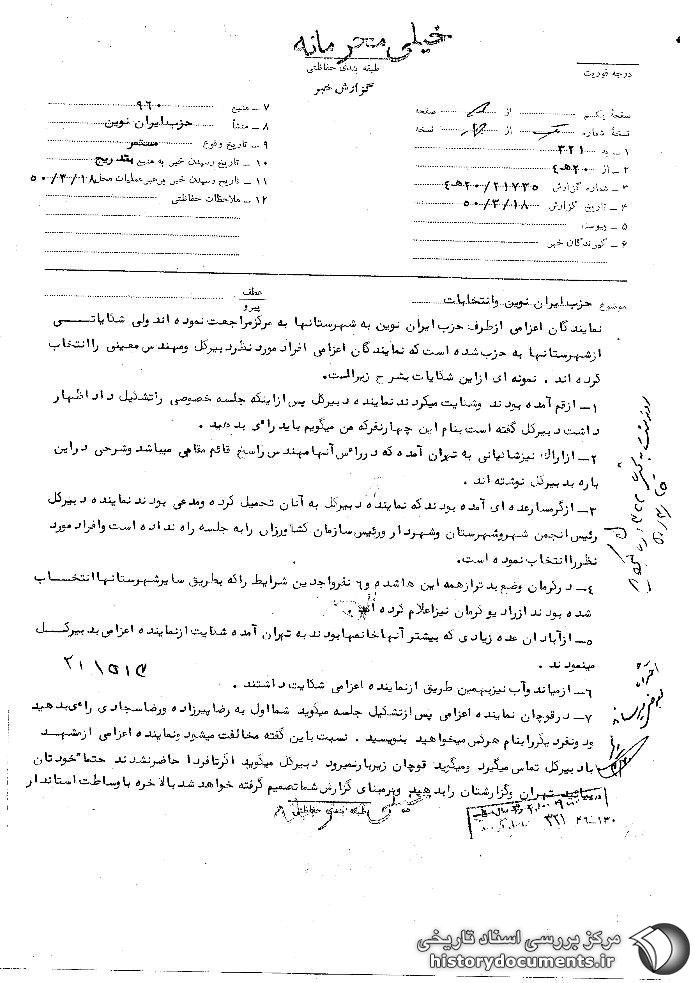 خیلی محرمانه
طبقه بندی حفاظتی
گزارش خبر
درجه فوریت
صفحه یکم از صفحه
نسخه شماره از نسخه
۱ ـ به ۳۲۱
۲ ـ از ۲۰هـ٤
۳ ـ شماره گزارش ۲۰/۲۱۷۳۵هـ٤
۴ ـ تاریخ گزارش ۵۰/۳/۱۸
۵ ـ پیوست
۶ ـ گیرندگان خبر
۷ ـ منبع ۹۶۰
۸ ـ منشأ حزب ایران نوین
۹ ـ تاریخ وقوع مستمر
۱۰ ـ تاریخ رسیدن خبر به منبع بتدریج
۱۱ ـ تاریخ رسیدن خبر برهبر عملیات محل ۵۰/۳/۱۸
۱۲ ـ ملاحظات حفاظتی
موضوع حزب ایران نوین وانتخابات
عطف
پیرو
نمایندگان اعزامی ازطرف حزب ایران نوین به شهرستانها به مرکزمراجعت نموده اند ولی شکایاتـــی
ازشهرستانها به حزب شده است که نمایندگان اعزامی افراد مورد نظردبیرکل ومهندس معینی راانتخاب
کرده اند . نمونه ای ازاین شکایات بشرح زیراست.
۱ــ ازقم آمده بودند وشکایت میکردند نماینده دبیرکل پس ازاینکه جلسه خصوصی راتشکیل داد اظهار
داشت دبیرکل گفته است بنام این چهارنفرکه من میگویم باید رأی بدهید .
۲ــ ازاراک نیزشاتیانی به تهران آمده که دررأس آنهامهندس راسخ قائم مقامی میباشد وشرحی دراین
باره بدبیرکل نوشته اند .
۳ــ ازگرمسارعده ای آمده بودند که نماینده دبیرکل به آنان تحمیل کرده ومدعی بودند نماینده دبیرکل
رئیس انجمن شهروشهرستان وشهردار ورئیس سازمان کشاورزان را به جلسه راه نداده است وافراد مورد
نظرراانتخاب نموده است.
۴ــ درکرمان وضع بدترازهمه این هاشده و۶ نفرواجدین شرایط راکه بطریق سایرشهرستانهاانتخـاب
شده بودند ازرادیوکرمان نیزاعلام کرده اند
۵ــ ازآبادان عده زیادی که بیشتر آنهاخانمهابودند به تهران آمده شکایت ازنماینده اعزامی بدبیرکـــل
مینمودند .
۶ــ ازمیاندوآب نیزبهمین طریق ازنماینده اعزامی شکایت داشتند .
۷ــ درقوچان نماینده اعزامی پس ازتشکیل جلسه میگوید شمااول به رضاپیرزاده ورضاسجادی رأی بدهید
ودونفردیگررابنام هرکس میخواهید بنویسید . نسبت باین گفته مخالفت میشود ونماینده اعزامی ازمشهد
بادبیرکل تماس میگیرد ومیگوید قوچان زیربارنمیرود دبیرکل میگوید اگرتافردا حاضرنشدند حتما" خودتان
بیائید تهران وگزارشتان رابدهید وبرمبنای گزارش شماتصمیم گرفته خواهد شد بالاخره با وساطت استاندار
طبقه بندی حفاظتی
۳۲۱ ۴۶ـ۱۳۰
مرکز بررسی اسناد تاریخی
historydocuments.ir